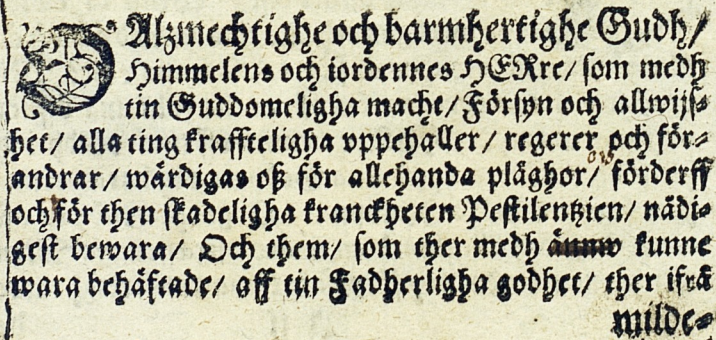 O Alzmechtighe och barmhertighe Gudh/
Himmelens och iordennes HERre/ som medh
tin Guddomeligha macht/ Försyn och allwijs⸗
het/ alla ting kraffteligha vppehaller/ regerer och för⸗
andrar/ wärdigas oß för allehanda plåghor/ förderff
och för then skadeligha kranckheten Pestilentzien/ nådi⸗
gest bewara/ Och them/ som ther medh kunne
wara behäftade/ aff tin Fadherligha godhet/ ther ifrå
milde⸗